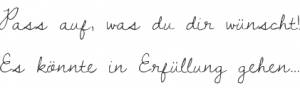 Pass auf, was du dir wünscht!
Es könnte in Erfüllung gehen...